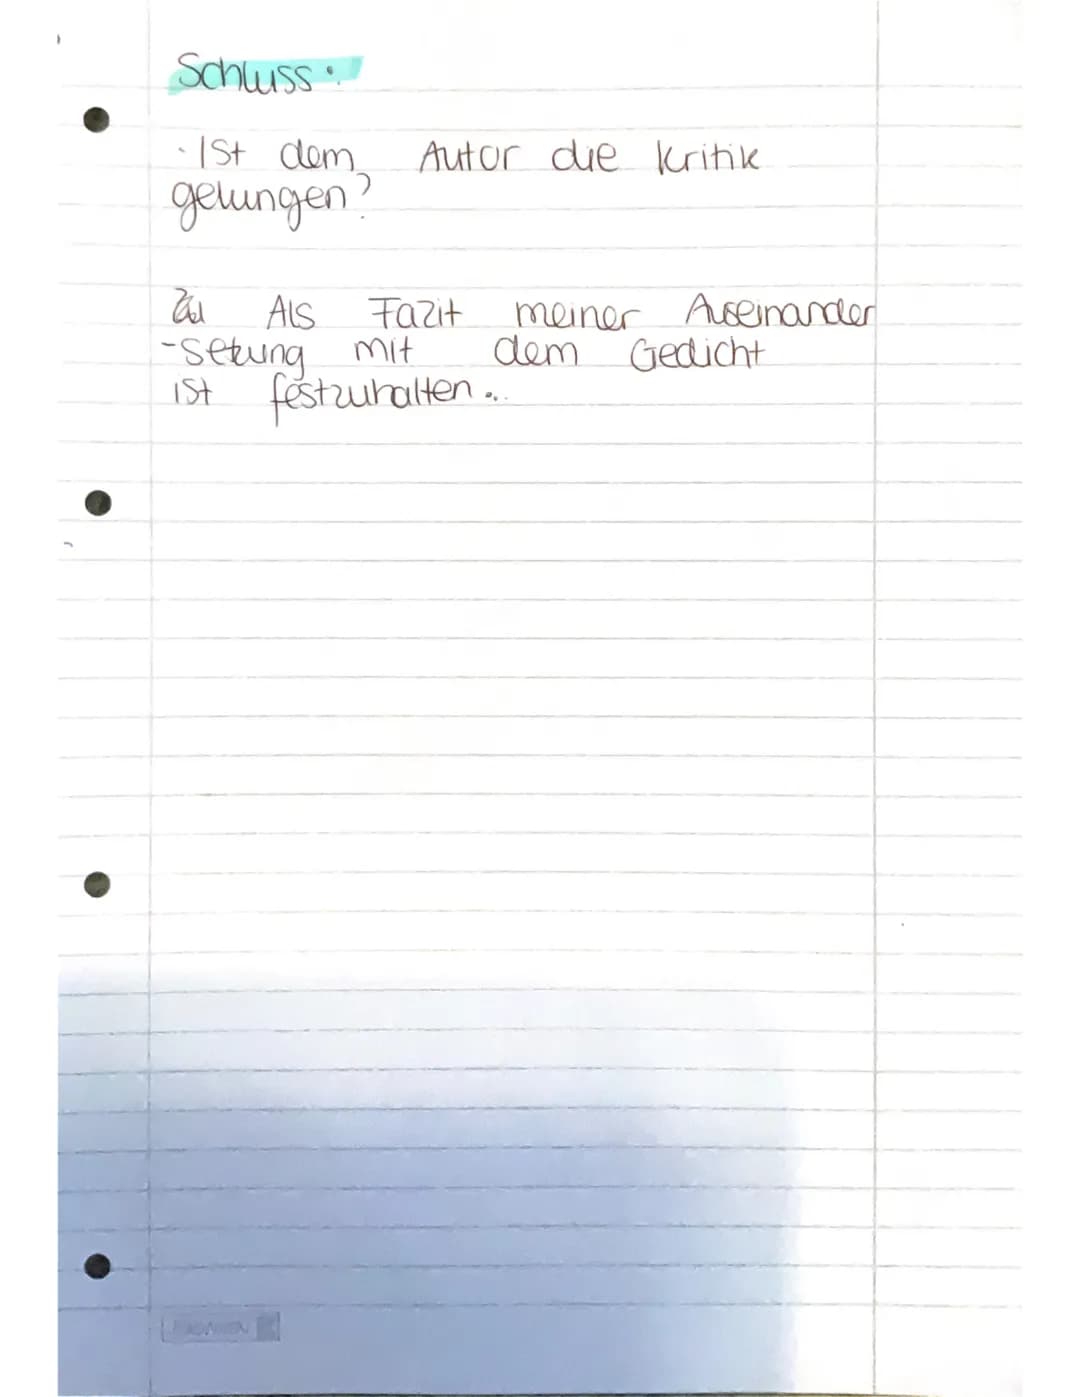 Schluss:
· Ist dem Autor die Kritik
gelungen?
Als Fazit meiner Auseinander
-setzung mit dem Gedicht
ist festzuhalten...